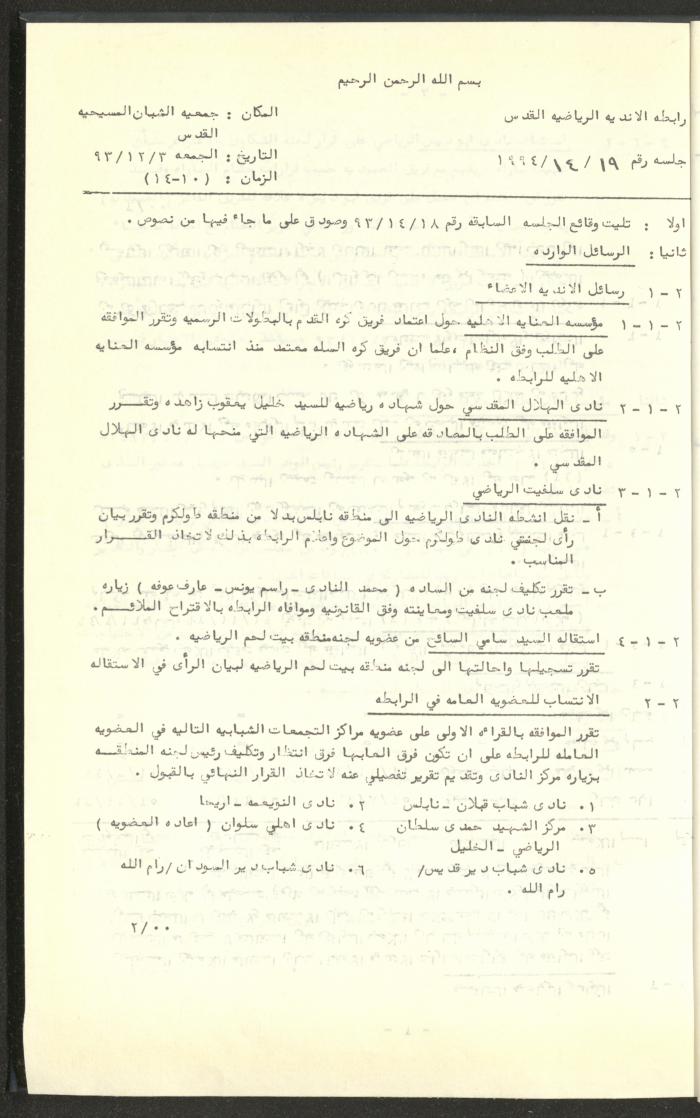 بسم الله الرحمن الرحيم
رابطه الانديه الرياضيه القدس
المكان : جمعيه الشبان المسيحيه
القدس
جلسه رقم ١٩ / ١٤ / ١٩٩٤
التاريخ : الجمعه ٩٣/١٢/٣
الزمان : (١٠-١٤)
اولا : تليت وقائع الجلسه السابقه رقم ٩٣/١٤/١٨ وصودق على ما جاء فيها من نصوص .
ثانيا : الرسائل الوارده
٢ - ١ رسائل الانديه الاعضاء
٢ - ١ - ١ مؤسسه العنايه الاهليه حول اعتماد فريق كره القدم بالبطولات الرسميه وتقرر الموافقه
على الطلب وفق النظام ،علما ان فريق كره السله معتمد منذ انتسابه مؤسسه العنايه
الاهليه للرابطه .
٢ - ١ - ٢ نادى الهلال المقدسي حول شهاده رياضيه للسيد خليل يعقوب زاهده وتقـــرر
الموافقه على الطلب بالمصادقه على الشهاده الرياضيه التي منحها له نادى الهلال
المقدسي .
٢ - ١ - ٣ نادى سلفيت الرياضي
أ - نقل انشطه النادى الرياضيه الى منطقه نابلس بدلا من منطقه طولكرم وتقرر بيان
رأى لجنتي نادى طولكرم حول الموضوع واعلام الرابطه بذلك لاتخاذ القـــــرار
المناسب .
ب- تقرر تكليف لجنه من الساده ( محمد النادى - راسم يونس - عارف عوفه ) زياره
ملعب نادى سلفيت ومعاينته وفق القانونيه وموافاه الرابطه بالاقتراح الملائـــم .
٢ - ١ - ٤ استقاله السيد سامي السائح من عضويه لجنه منطقه بيت لحم الرياضيه .
تقرر تسجيلها واحالتها الى لجنه منطقه بيت لحم الرياضيه لبيان الرأى في الاستقاله
٢ - ٢ الانتساب للعضويه العامه في الرابطه
تقرر الموافقه بالقراءه الاولى على عضويه مراكز التجمعات الشبابيه التاليه في العضويه
العامله للرابطه على ان تكون فرق العابها فرق انتظار وتكليف رئيس لجنه المنطقــه
بزياره مركز النادى وتقديم تقرير تفصيلي عنه لاتخاذ القرار النهائي بالقبول .
١. نادى شباب قبلان - نابلس ٢. نادى النويعمه - اريحا
٣. مركز الشهيد حمدى سلطان ٤. نادى اهلي سلوان ( اعاده العضويه )
الرياضي - الخليل
٥. نادى شباب دير قديس/ ٦. نادى شباب دير السودان /رام الله
رام الله .
٢/٠٠